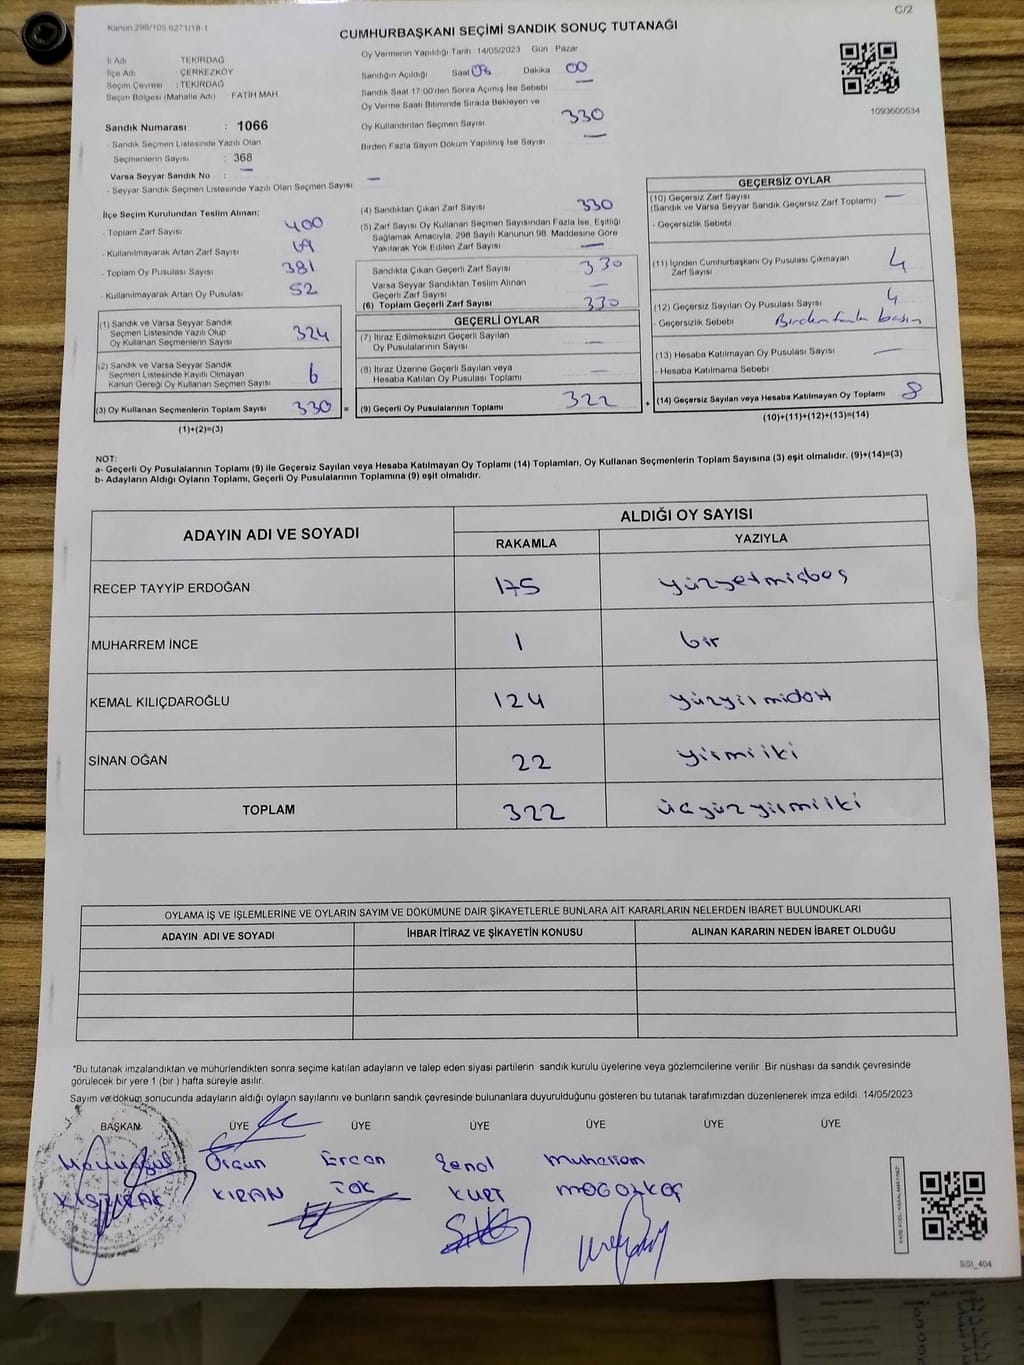 Kanun 298/105 6271/18-1
C/2
CUMHURBAŞKANI SEÇİMİ SANDIK SONUÇ TUTANAĞI
İl Adı TEKİRDAĞ
İlçe Adı ÇERKEZKÖY
Seçim Çevresi : TEKİRDAĞ
Seçim Bölgesi (Mahalle Adı) FATİH MAH.
Sandık Numarası : 1066
- Sandık Seçmen Listesinde Yazılı Olan
Seçmenlerin Sayısı : 368
Varsa Seyyar Sandık No : —
- Seyyar Sandık Seçmen Listesinde Yazılı Olan Seçmen Sayısı —
Oy Vermenin Yapıldığı Tarih : 14/05/2023 Gün Pazar
Sandığın Açıldığı Saat 08 Dakika 00
Sandık Saat 17.00'den Sonra Açımış İse Sebebi —
Oy Verme Saati Bitiminde Sırada Bekleyen ve
Oy Kullandırılan Seçmen Sayısı 330
Birden Fazla Sayım Döküm Yapılmış İse Sayısı —
1093600534
İlçe Seçim Kurulundan Teslim Alınan;
- Toplam Zarf Sayısı 400
- Kullanılmayarak Artan Zarf Sayısı 69
- Toplam Oy Pusulası Sayısı 381
- Kullanılmayarak Artan Oy Pusulası 52
(1) Sandık ve Varsa Seyyar Sandık
Seçmen Listesinde Yazılı Olup
Oy Kullanan Seçmenlerin Sayısı 324
(2) Sandık ve Varsa Seyyar Sandık
Seçmen Listesinde Kayıtlı Olmayan
Kanun Gereği Oy Kullanan Seçmen Sayısı 6
(3) Oy Kullanan Seçmenlerin Toplam Sayısı 330 =
(1)+(2)=(3)
(4) Sandıktan Çıkan Zarf Sayısı 330
(5) Zarf Sayısı Oy Kullanan Seçmen Sayısından Fazla İse, Eşitliği
Sağlamak Amacıyla, 298 Sayılı Kanunun 98. Maddesine Göre
Yakılarak Yok Edilen Zarf Sayısı —
Sandıkta Çıkan Geçerli Zarf Sayısı 330
Varsa Seyyar Sandıktan Teslim Alınan
Geçerli Zarf Sayısı —
(6) Toplam Geçerli Zarf Sayısı 330
GEÇERLİ OYLAR
(7) İtiraz Edilmeksizin Geçerli Sayılan
Oy Pusulalarının Sayısı —
(8) İtiraz Üzerine Geçerli Sayılan veya
Hesaba Katılan Oy Pusulası Toplamı —
(9) Geçerli Oy Pusulalarının Toplamı 322 +
GEÇERSİZ OYLAR
(10) Geçersiz Zarf Sayısı
(Sandık ve Varsa Seyyar Sandık Geçersiz Zarf Toplamı) —
- Geçersizlik Sebebi
(11) İçinden Cumhurbaşkanı Oy Pusulası Çıkmayan
Zarf Sayısı 4
(12) Geçersiz Sayılan Oy Pusulası Sayısı 4
- Geçersizlik Sebebi Birden fazla basım
(13) Hesaba Katılmayan Oy Pusulası Sayısı —
- Hesaba Katılmama Sebebi
(14) Geçersiz Sayılan veya Hesaba Katılmayan Oy Toplamı 8
(10)+(11)+(12)+(13)=(14)
NOT:
a- Geçerli Oy Pusulalarının Toplamı (9) ile Geçersiz Sayılan veya Hesaba Katılmayan Oy Toplamı (14) Toplamları, Oy Kullanan Seçmenlerin Toplam Sayısına (3) eşit olmalıdır. (9)+(14)=(3)
b- Adayların Aldığı Oyların Toplamı, Geçerli Oy Pusulalarının Toplamına (9) eşit olmalıdır.
ADAYIN ADI VE SOYADI
ALDIĞI OY SAYISI
RAKAMLA YAZIYLA
RECEP TAYYİP ERDOĞAN 175 yüzyetmişbeş
MUHARREM İNCE 1 bir
KEMAL KILIÇDAROĞLU 124 yüzyirmidört
SİNAN OĞAN 22 yirmiiki
TOPLAM 322 üçyüzyirmiiki
OYLAMA İŞ VE İŞLEMLERİNE VE OYLARIN SAYIM VE DÖKÜMÜNE DAİR ŞİKAYETLERLE BUNLARA AİT KARARLARIN NELERDEN İBARET BULUNDUKLARI
ADAYIN ADI VE SOYADI İHBAR İTİRAZ VE ŞİKAYETİN KONUSU ALINAN KARARIN NEDEN İBARET OLDUĞU
*Bu tutanak imzalandıktan ve mühürlendikten sonra seçime katılan adayların ve talep eden siyasi partilerin sandık kurulu üyelerine veya gözlemcilerine verilir .Bir nüshası da sandık çevresinde
görülecek bir yere 1 (bir ) hafta süreyle asılır.
Sayım ve döküm sonucunda adayların aldığı oyların sayılarını ve bunların sandık çevresinde bulunanlara duyurulduğunu gösteren bu tutanak tarafımızdan düzenlenerek imza edildi. 14/05/2023
BAŞKAN ÜYE ÜYE ÜYE ÜYE ÜYE ÜYE
Orçun Ercan Şenol Muharrem
KIRAN TOK KURT
SSI_404